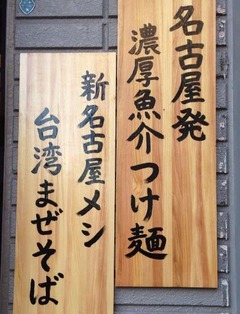 名古屋発
濃厚魚介つけ麺
新名古屋メシ
台湾まぜそば